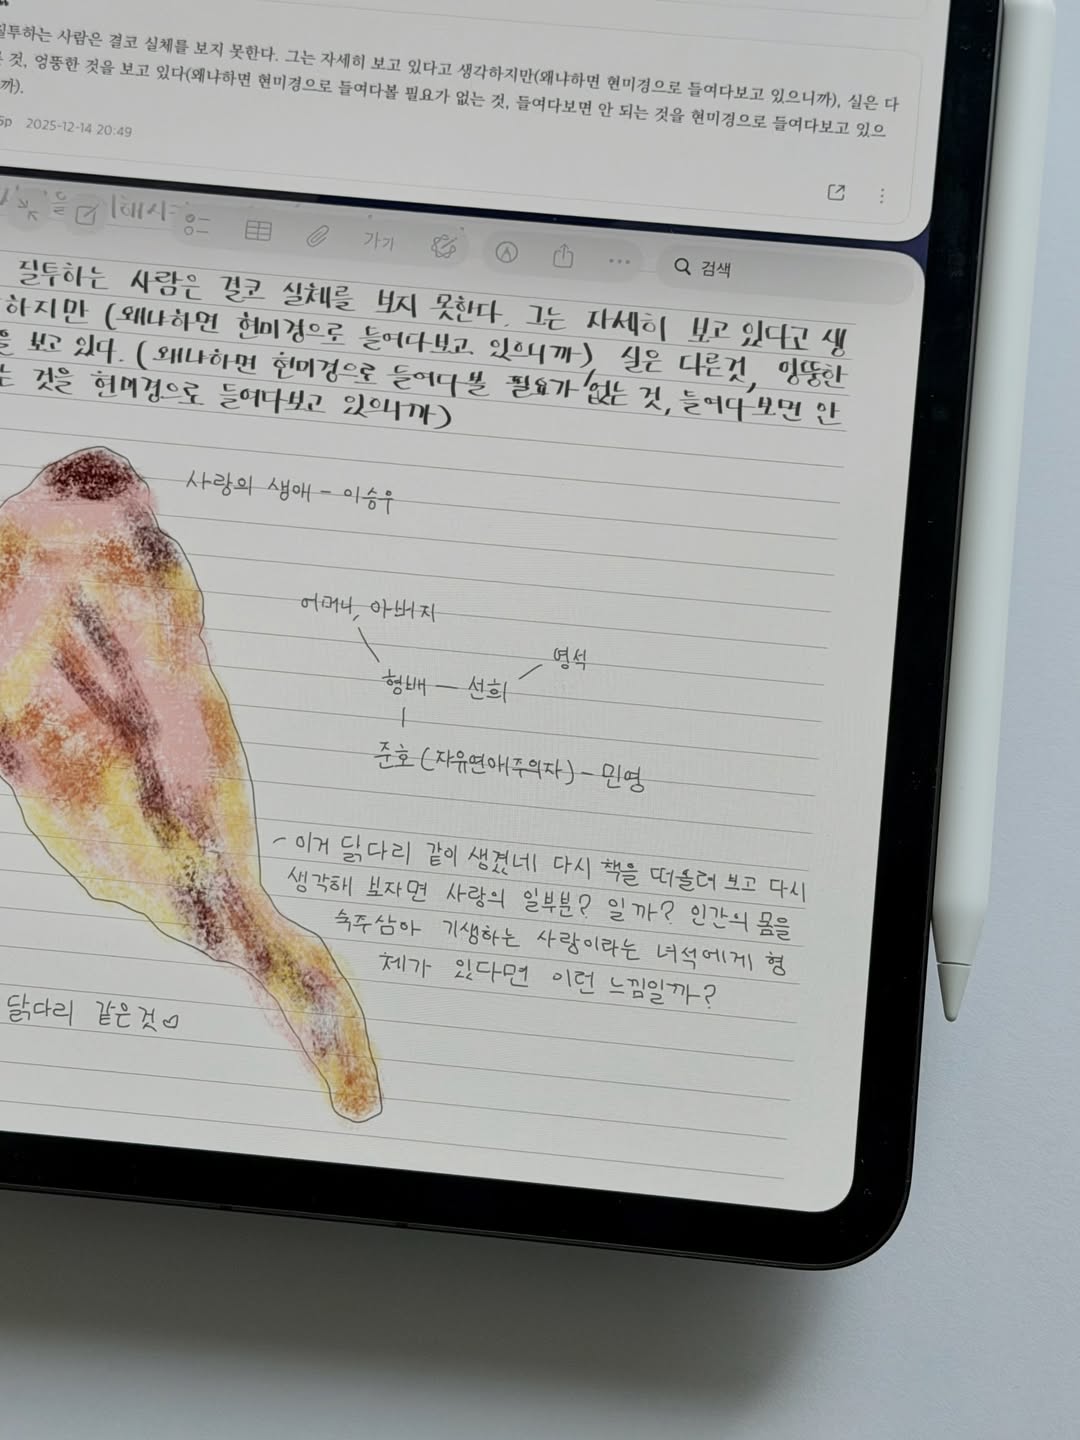 질투하는 사람은 결코 실체를 보지 못한다. 그는 자세히 보고 있다고 생각하지만(왜냐하면 현미경으로 들여다보고 있으니까), 실은 다
것, 엉뚱한 것을 보고 있다(왜냐하면 현미경으로 들여다볼 필요가 없는 것, 들여다보면 안 되는 것을 현미경으로 들여다보고 있으
까).
5p 2025-12-14 20:49
가가
검색
질투하는 사람은 결코 실체를 보지 못한다. 그는 자세히 보고 있다고 생
하지만 (왜냐하면 현미경으로 들여다보고 있으니까), 실은 다른것, 엉뚱한
을 보고 있다. (왜냐하면 현미경으로 들여다볼 필요가 없는 것, 들여다보면 안
는 것을 현미경으로 들여다보고 있으니까)
사랑의 생애 - 이승우
어머니, 아버지
영석
형배 — 선희
준호 (자유연애주의자) - 민영
이거 닭다리 같이 생겼네 다시 책을 떠올려 보고 다시
생각해 보자면 사랑의 일부분? 일까? 인간의 몸을
숙주삼아 기생하는 사랑이라는 녀석에게 형
체가 있다면 이런 느낌일까?
닭다리 같은것♡